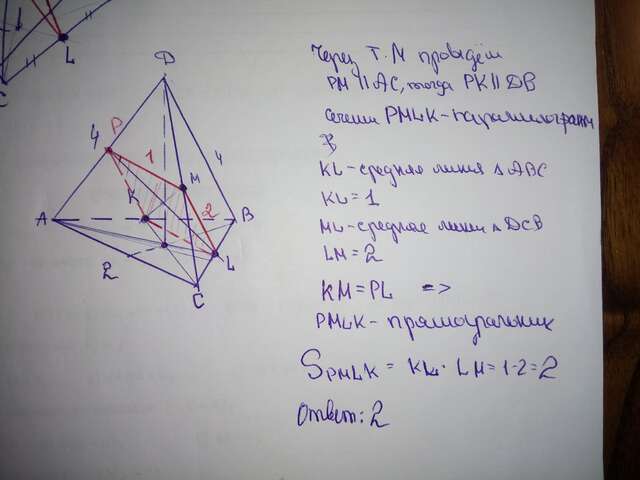 L
C
D
4
P
1
4
M
K
2
A
B
L
2
C
Через т. M проведём
PM || AC, тогда PK || DB
сечение PMLK - параллелограмм
KL - средняя линия △ ABC
KL = 1
ML - средняя линия △ DCB
LM = 2
KM = PL =>
PMLK - прямоугольник
S PMLK = KL · LM = 1·2 = 2
Ответ: 2